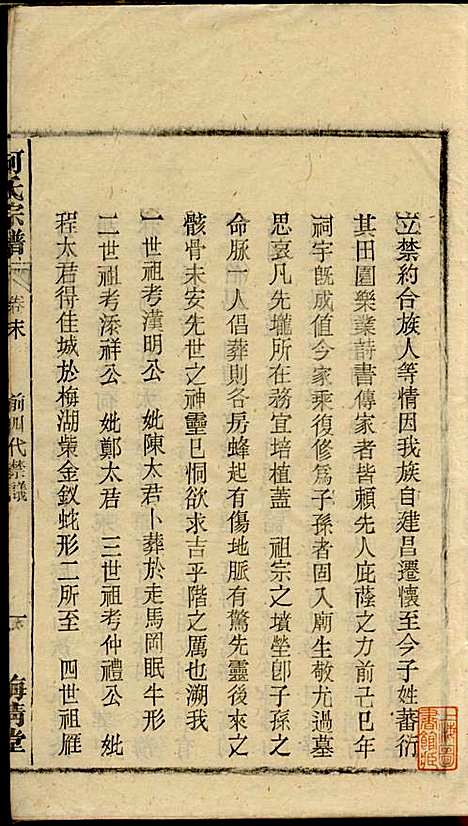 立禁約合族人等情因我族自建昌遷懷至今子姓蕃衍
其田園樂業詩書傳家者皆賴先人庇蔭之力前己巳年
祠宇既成值今家乘復修爲子孫者固入廟生敬尤過墓
思哀凡先壠所在務宜培植蓋 祖宗之墳塋卽子孫之
命脈一人倡葬則各房蜂起有傷地脈有驚先靈後來之
骸骨未安先世之神靈已恫欲求吉乎階之厲也溯我
一世祖考漢明公 妣陳太君卜葬於走馬岡眠牛形
二世祖考添祥公 妣鄭太君 三世祖考仲禮公 妣
程太君得佳城於梅湖柴金釵蛇形二所至 四世祖雁
何氏宗譜 卷末 前四代禁議